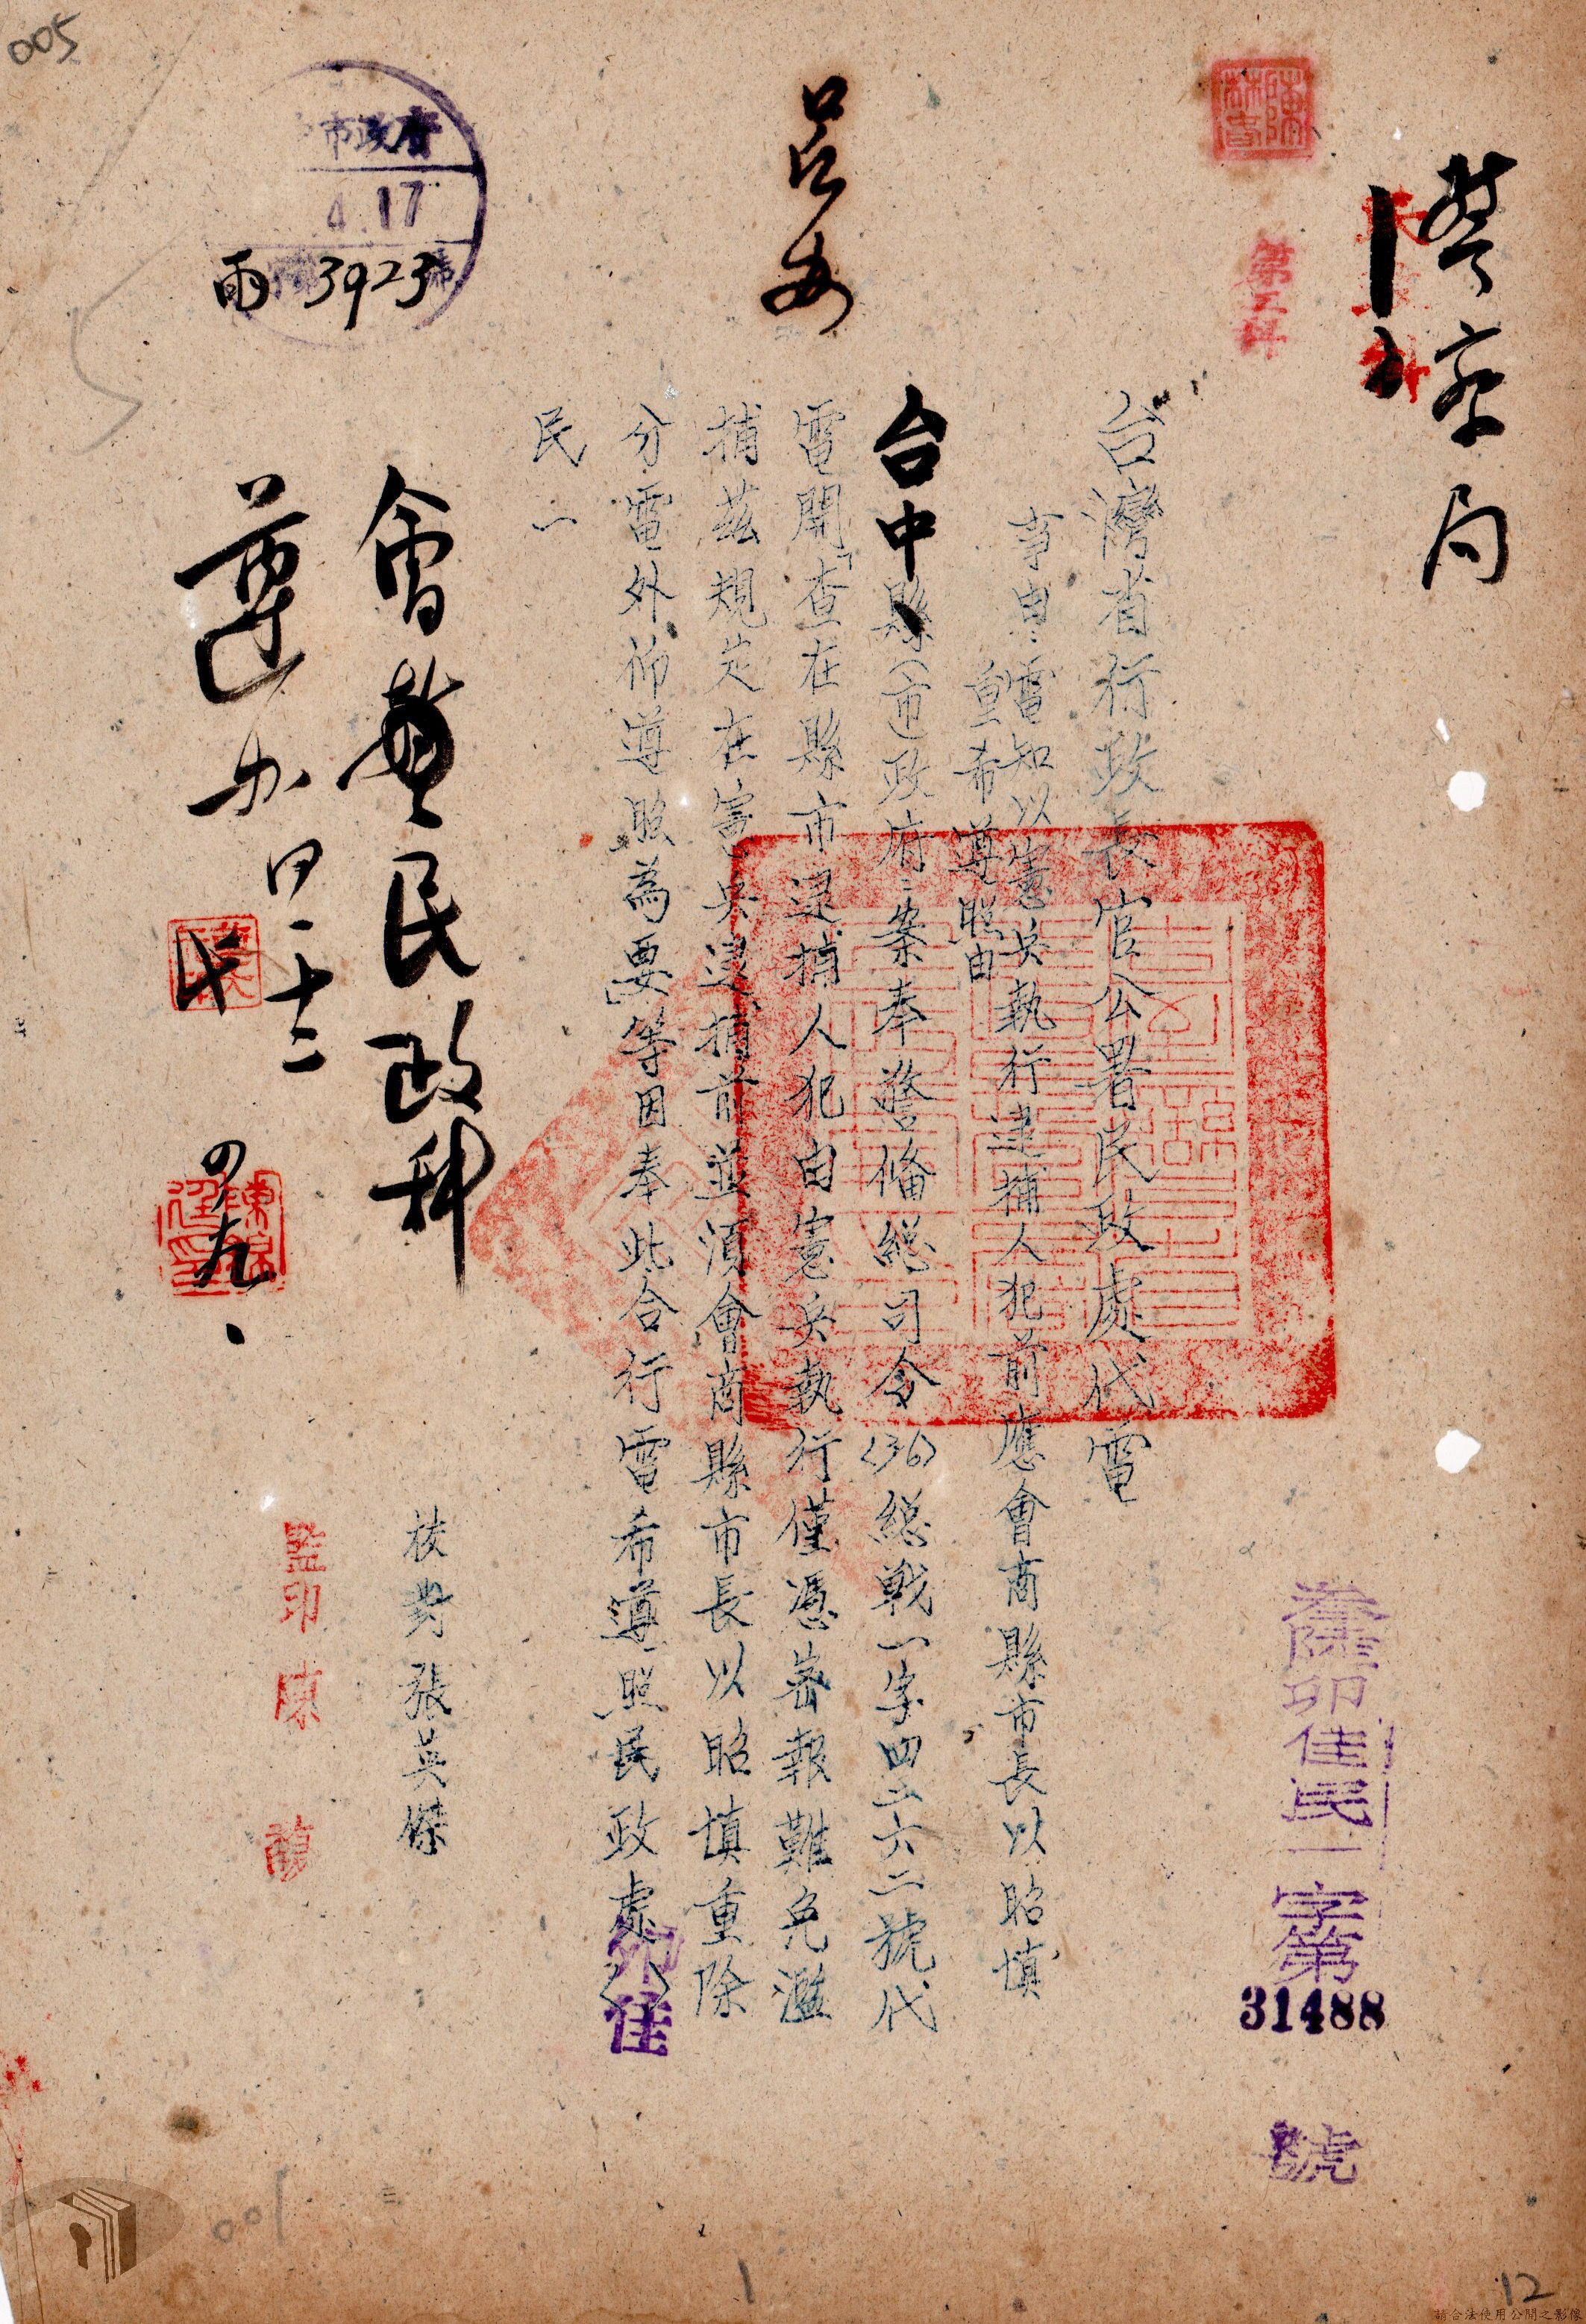 警察局
第三科
參陸卯佳民一字第
31488
號
台灣省行政長官公署民政處代電
事由：電知以憲兵執行逮捕人犯前應會商縣市長以昭慎
重希遵照由
台中縣（市）政府：案奉警備總司令〈36〉總戰一字四二六二號代
電開「查在縣市逮捕人犯由憲兵執行僅憑密報難免濫
捕茲規定在憲兵逮捕前並須會商縣市長以昭慎重除
分電外仰遵照為要」等因奉此合行電希遵照民政處〈 〉
卯佳
民一
校對張英傑
監印陳
會警民政科
遵办
四·十二
四·九
市政府
4.17
雨 3923
005
001
1
12
請合法使用公開之影像